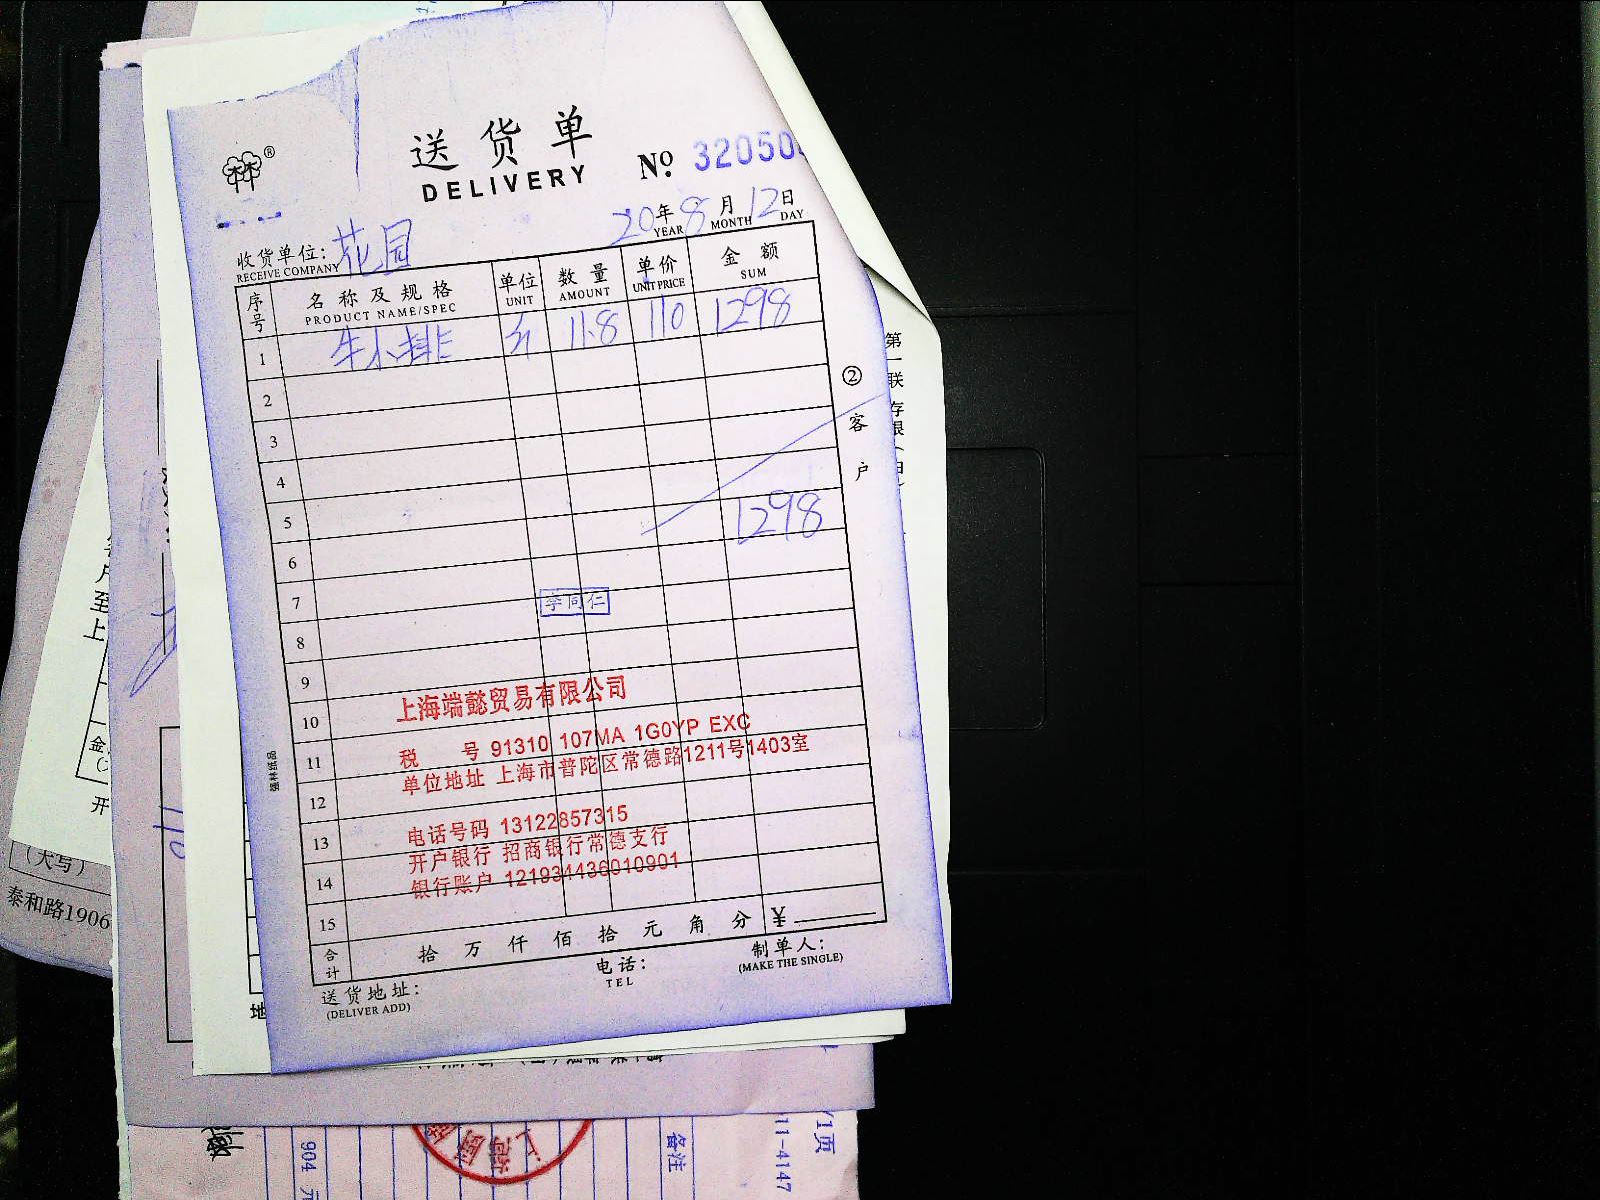 送货单
DELIVERY
№ 32050
20年 8月 12日
YEAR MONTH DAY
收货单位: 花园
RECEIVE COMPANY
序号 名称及规格 单位 数量 单价 金额
PRODUCT NAME/SPEC UNIT AMOUNT UNIT PRICE SUM
1 牛小排 斤 11.8 110 1298
2
3
4
5 1298
6
7 李同仁
8
9
10
11
12
13
14
15
上海端懿贸易有限公司
税 号 91310 107MA 1G0YP EXC
单位地址 上海市普陀区常德路1211号1403室
电话号码 13122857315
开户银行 招商银行常德支行
银行账户 121934436010901
合计 拾 万 仟 佰 拾 元 角 分 ¥
送货地址: 电话: 制单人:
(DELIVER ADD) TEL (MAKE THE SINGLE)
② 客户
强林纸品
第一联 存根
(大写)
泰和路1906
904 元
备注
/1页
11-4147